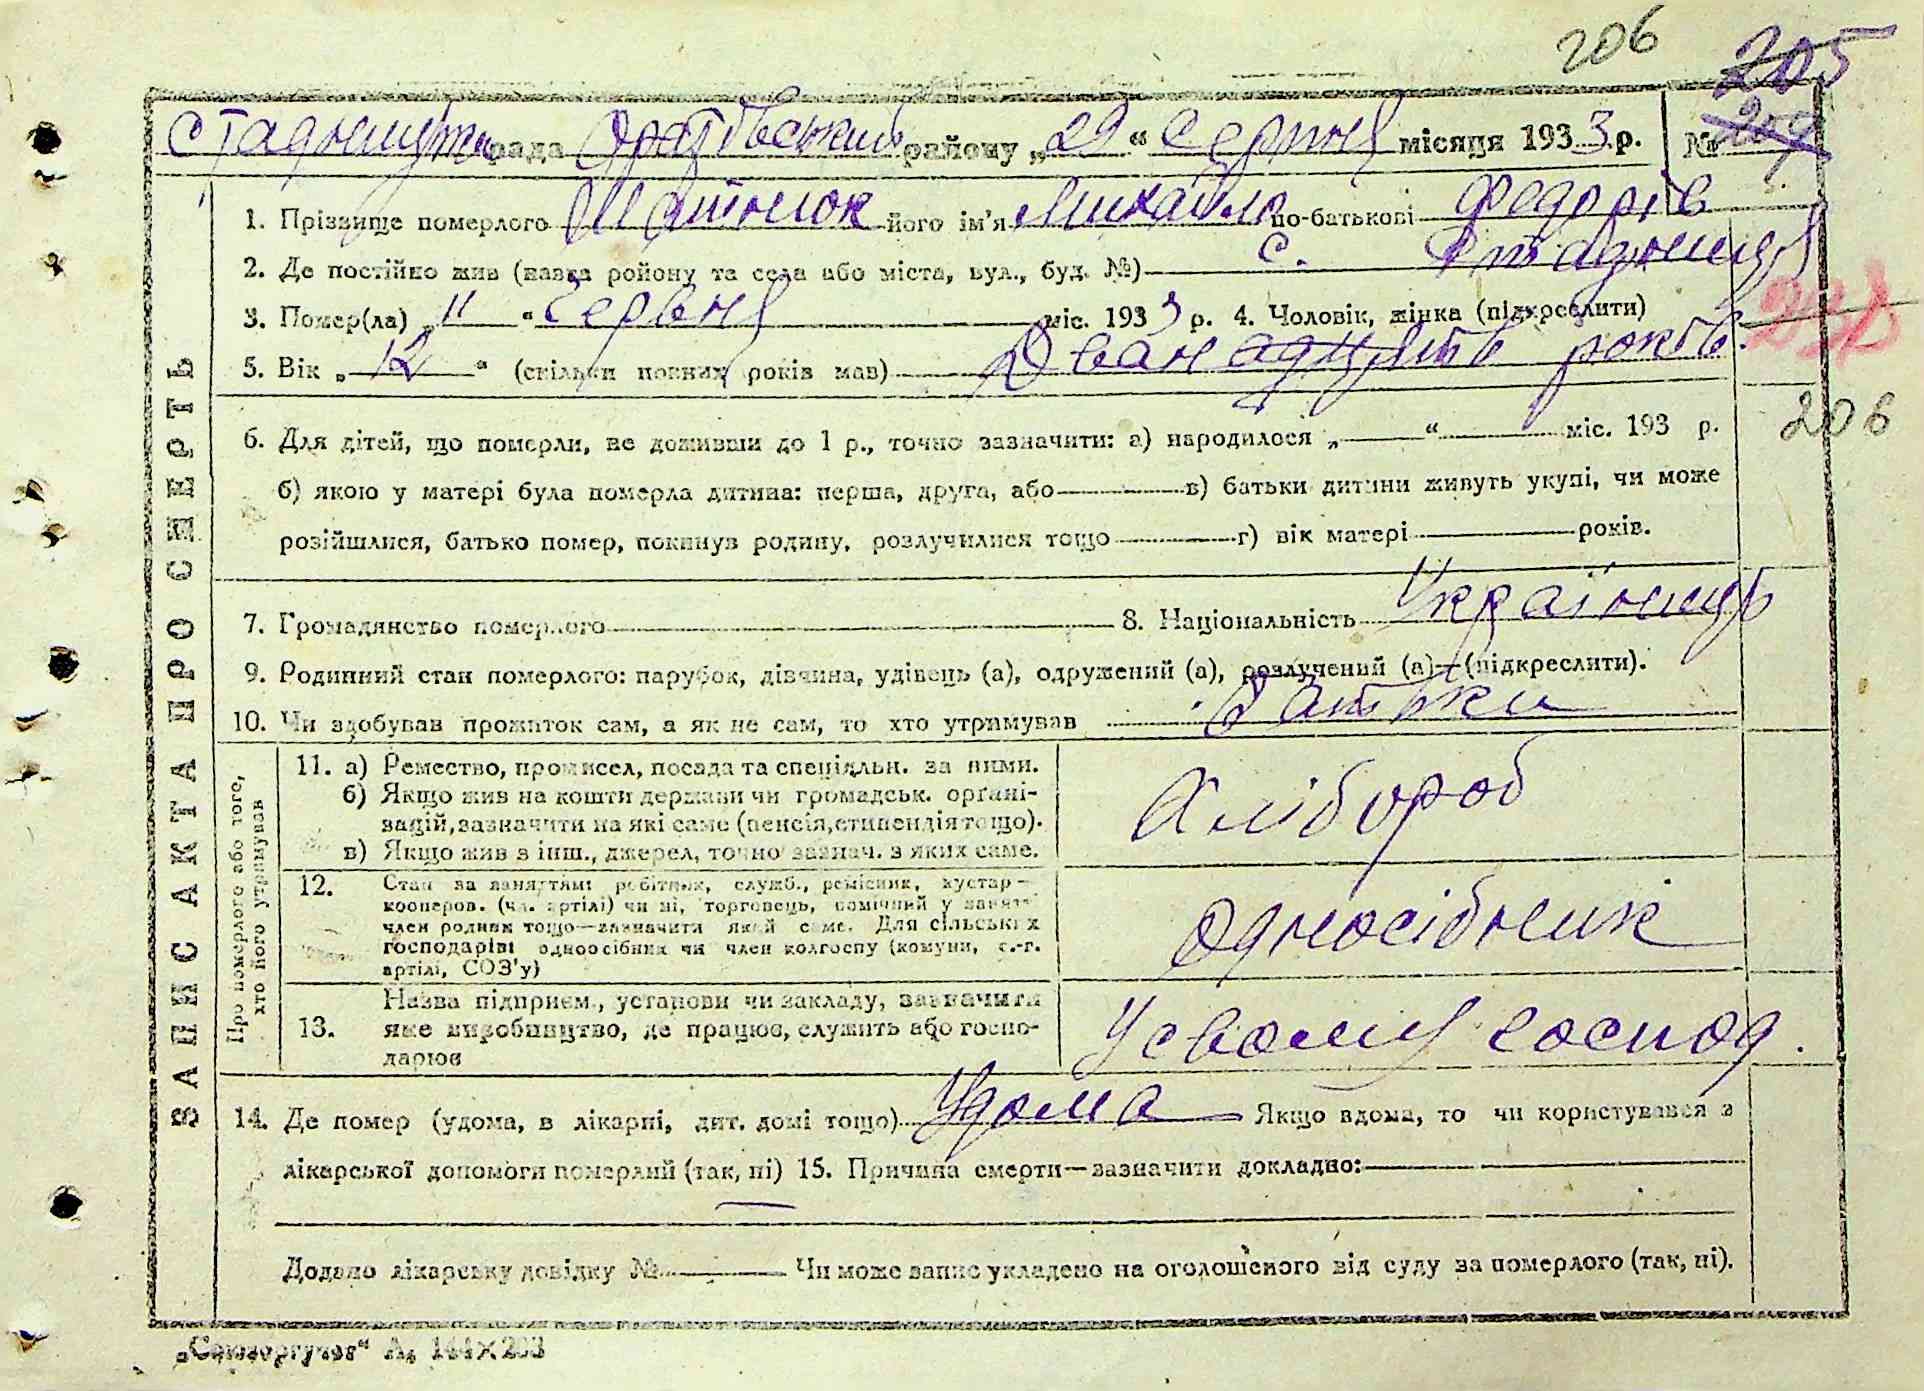 206 205
рада Оратівський району „29“ Серпня місяця 1933 р. № 209
1. Прізвище померлого його ім'я Михайло по-батькові Федорів
2. Де постійно жив (назва ройону та села або міста, вул., буд. №) с. Стадниця
3. Помер(ла) „11“ Червня міс. 1933 р. 4. Чоловік, жінка (підкреслити)
5. Вік „12“ (скільки повних років мав) Дванадцять років.
206
6. Для дітей, що померли, не доживши до 1 р., точно зазначити: а) народилося „ “ міс. 193 р.
б) якою у матері була померла дитина: перша, друга, або в) батьки дитини живуть укупі, чи може
розійшлися, батько помер, покинув родину, розлучилися тощо г) вік матері років.
7. Громадянство померлого 8. Національність Українець
9. Родинний стан померлого: парубок, дівчина, удівець (а), одружений (а), розлучений (а)—(підкреслити).
10. Чи здобував прожиток сам, а як не сам, то хто утримував Батьки
ЗАПИС АКТА ПРО СМЕРТЬ
Про померлого або того, хто його утримував
11. а) Ремество, промисел, посада та спеціяльн. за ними.
б) Якщо жив на кошти держави чи громадськ. органі-
зацій, зазначити на які саме (пенсія, стипендія тощо).
в) Якщо жив з інш., джерел, точно зазнач. з яких саме.
Хлібороб
12. Стан за заняттям: робітник, служб., ремісник, кустар—
кооперов. (чл. артілі) чи ні, торговець, помічний у занятт.
член родини тощо—зазначити який саме. Для сільських
господарів: одноосібник чи член колгоспу (комуни, с.-г.
артілі, СОЗ'у)
Одноосібник
13. Назва підприєм., установи чи закладу, зазначити
яке виробництво, де працює, служить або госпо-
дарює
У своему господ.
14. Де помер (удома, в лікарні, дит. домі тощо) Удома Якщо вдома, то чи користувався з
лікарської допомоги померлий (так, ні) 15. Причина смерти—зазначити докладно:
Додано лікарську довідку № Чи може запис укладено на оголошеного від суду за померлого (так, ні).
„Союзоргучет“ А₅ 144×203